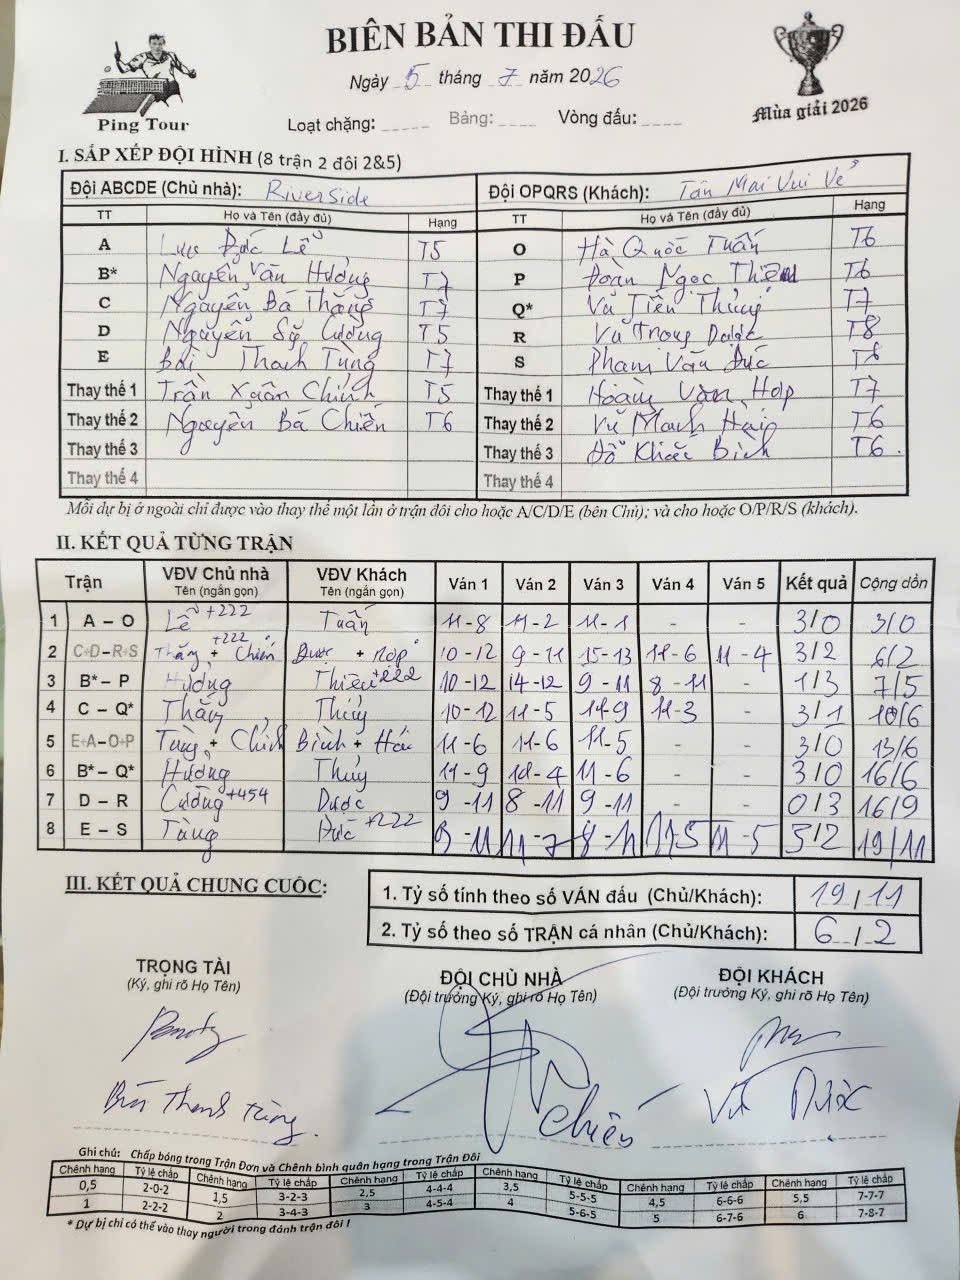 BIÊN BẢN THI ĐẤU
Ngày 5 tháng 7 năm 2026
Ping Tour
Mùa giải 2026
Loạt chặng: Bảng: Vòng đấu:
I. SẮP XẾP ĐỘI HÌNH (8 trận 2 đôi 2&5)
Đội ABCDE (Chủ nhà): Riverside Đội OPQRS (Khách): Tân Mai Vui Vẻ
TT Họ và Tên (đầy đủ) Hạng TT Họ và Tên (đầy đủ) Hạng
A Lưu Đức Lễ T5 O Hà Quốc Tuấn T6
B* Nguyễn Văn Hưởng T7 P Đoàn Ngọc Thiều T6
C Nguyễn Bá Thắng T7 Q* Vũ Tiến Thủy T7
D Nguyễn Sỹ Cường T5 R Vũ Trọng Dược T8
E Bùi Thanh Tùng T7 S Phạm Văn Đức T6
Thay thế 1 Trần Xuân Chính T5 Thay thế 1 Hoàng Văn Hợp T7
Thay thế 2 Nguyễn Bá Chiến T6 Thay thế 2 Vũ Mạnh T6
Thay thế 3 Thay thế 3 Đỗ Khắc Bình T6.
Thay thế 4 Thay thế 4
Mỗi dự bị ở ngoài chỉ được vào thay thế một lần ở trận đôi cho hoặc A/C/D/E (bên Chủ); và cho hoặc O/P/R/S (khách).
II. KẾT QUẢ TỪNG TRẬN
Trận VĐV Chủ nhà Tên (ngắn gọn) VĐV Khách Tên (ngắn gọn) Ván 1 Ván 2 Ván 3 Ván 4 Ván 5 Kết quả Cộng dồn
1 A – O Lễ +222 Tuấn 11-8 11-2 11-1 - - 3/0 3/0
2 C+D–R+S Thắng + Chiến +222 Dược + Hợp 10-12 9-11 15-13 11-6 11-4 3/2 6/2
3 B* – P Hưởng Thiều +222 10-12 14-12 9-11 8-11 - 1/3 7/5
4 C – Q* Thắng Thủy 10-12 11-5 11-9 11-3 - 3/1 10/6
5 E+A–O+P Tùng + Chính Bình + Hải 11-6 11-6 11-5 - - 3/0 13/6
6 B* – Q* Hưởng Thủy 11-9 -4 11-6 - - 3/0 16/6
7 D – R Cường +454 Dược 9-11 8-11 9-11 - - 0/3 16/9
8 E – S Tùng Đức +222 9-11 11-7 8-11 11-5 11-5 3/2 19/11
III. KẾT QUẢ CHUNG CUỘC:
1. Tỷ số tính theo số VÁN đấu (Chủ/Khách): 19/11
2. Tỷ số theo số TRẬN cá nhân (Chủ/Khách): 6/2
TRỌNG TÀI ĐỘI CHỦ NHÀ ĐỘI KHÁCH
(Ký, ghi rõ Họ Tên) (Đội trưởng Ký, ghi rõ Họ Tên) (Đội trưởng Ký, ghi rõ Họ Tên)
Bùi Thanh Tùng Chiến Vũ Dược
Ghi chú: Chấp bóng trong Trận Đơn và Chênh bình quân hạng trong Trận Đôi
Chênh hạng Tỷ lệ chấp Chênh hạng Tỷ lệ chấp Chênh hạng Tỷ lệ chấp Chênh hạng Tỷ lệ chấp Chênh hạng Tỷ lệ chấp Chênh hạng Tỷ lệ chấp
0,5 2-0-2 1,5 3-2-3 2,5 4-4-4 3,5 5-5-5 4,5 6-6-6 5,5 7-7-7
1 2-2-2 2 3-4-3 3 4-5-4 4 5-6-5 5 6-7-6 6 7-8-7
* Dự bị chỉ có thể vào thay người trong đánh trận đôi !